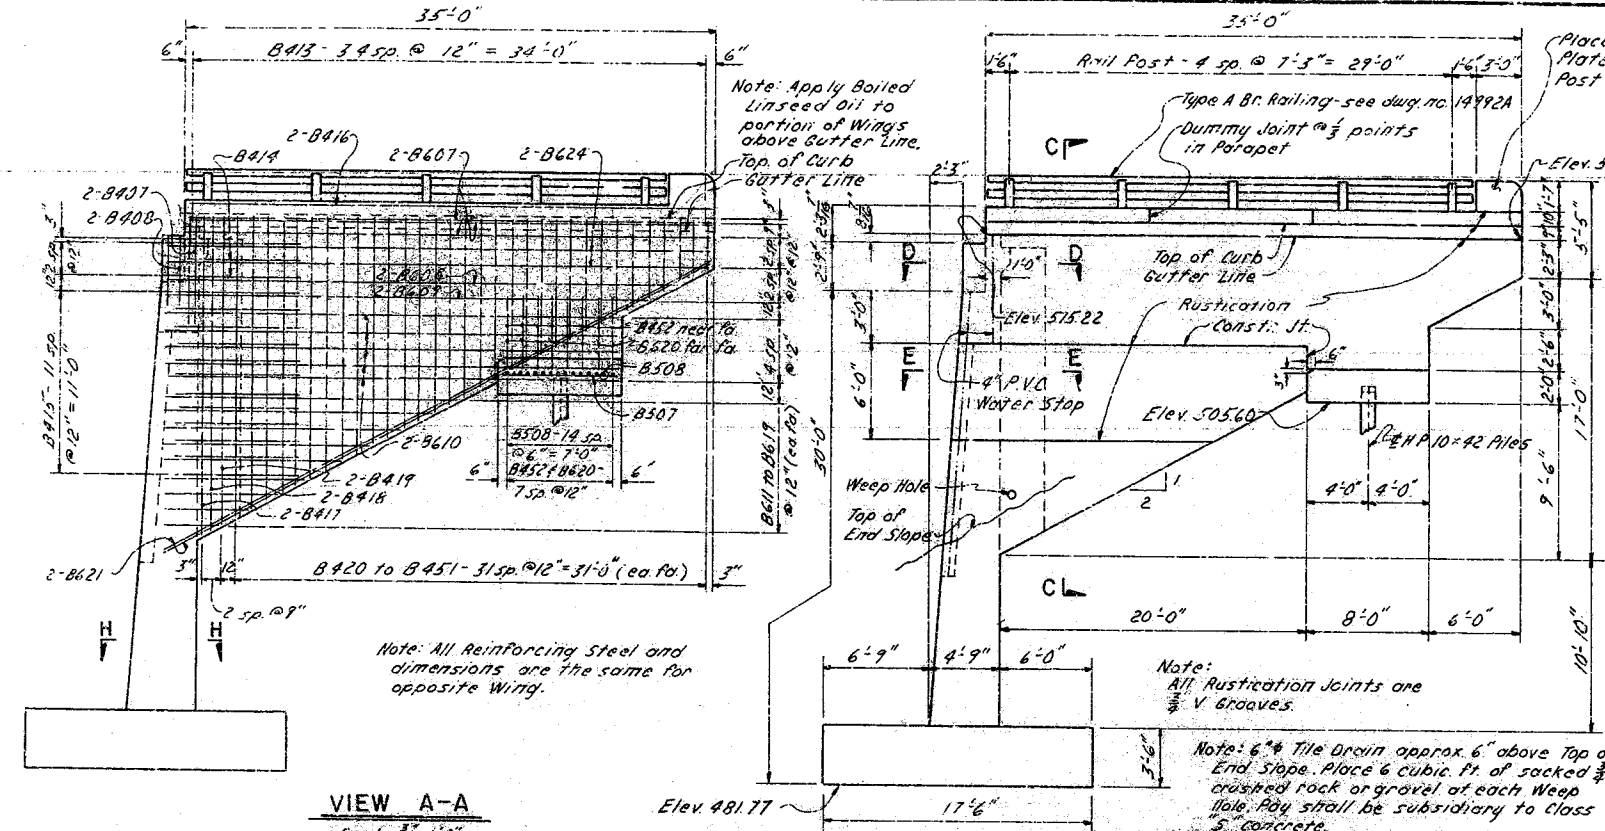 35'-0"
6"
B413 - 34 sp. @ 12" = 34'-0"
6"
Note: Apply Boiled
Linseed Oil to
portion of Wings
above Gutter Line.
Top of Curb
Gutter Line
2-B416
B414
2-B607
2-B624
2-B407
2-B408
2-B609
B452 near fa.
B620 far fa.
B508
B507
B415 - 11 sp.
@ 12" = 11'-0"
2-B610
B508-14 sp.
@ 6" = 7'-0"
6"
B452 & B620-
6"
7 sp. @ 12"
2-B419
2-B418
2-B417
B611 to B619
@ 12" (ea. fa.)
2-B621
3"
12"
B420 to B451 - 31 sp. @ 12" = 31'-0" (ea. fa.)
3"
2 sp. @ 9"
H
H
Note: All Reinforcing Steel and
dimensions are the same for
opposite Wing.
VIEW A-A
35'-0"
1'-6"
Rail Post - 4 sp. @ 7'-3" = 29'-0"
1'-6"
3'-0"
Type A Br. Railing - see dwg. no. 14992A
Dummy Joint @ ⅓ points
in Parapet
C
2'-3"
D
D
1'-0"
Top of Curb
Gutter Line
Rustication
Const. Jt.
Elev. 515.22
3'-0"
E
E
6'-0"
30'-0"
4" P.V.C.
Water Stop
6"
3"
Elev. 505.60
℄ HP 10×42 Piles
Weep Hole
Top of
End Slope
1
2
4'-0"
4'-0"
5'-5"
3'-0"
2'-6"
2'-0"
17'-0"
9'-6"
10'-10"
C
20'-0"
8'-0"
6'-0"
6'-9"
4'-9"
6'-0"
Note:
All Rustication Joints are
¾" V Grooves.
3'-6"
Elev. 481.77
17'-6"
Note: 6"φ Tile Drain approx. 6" above Top
End Slope. Place 6 cubic ft. of sacked
crushed rock or gravel at each Weep
Hole. Pay shall be subsidiary to Class
"S" concrete.